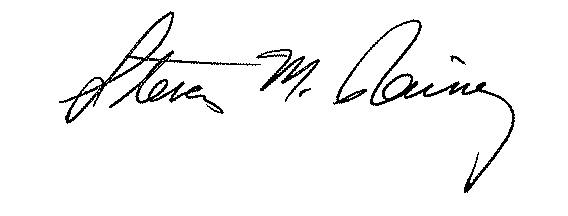 Steven M. Rainey